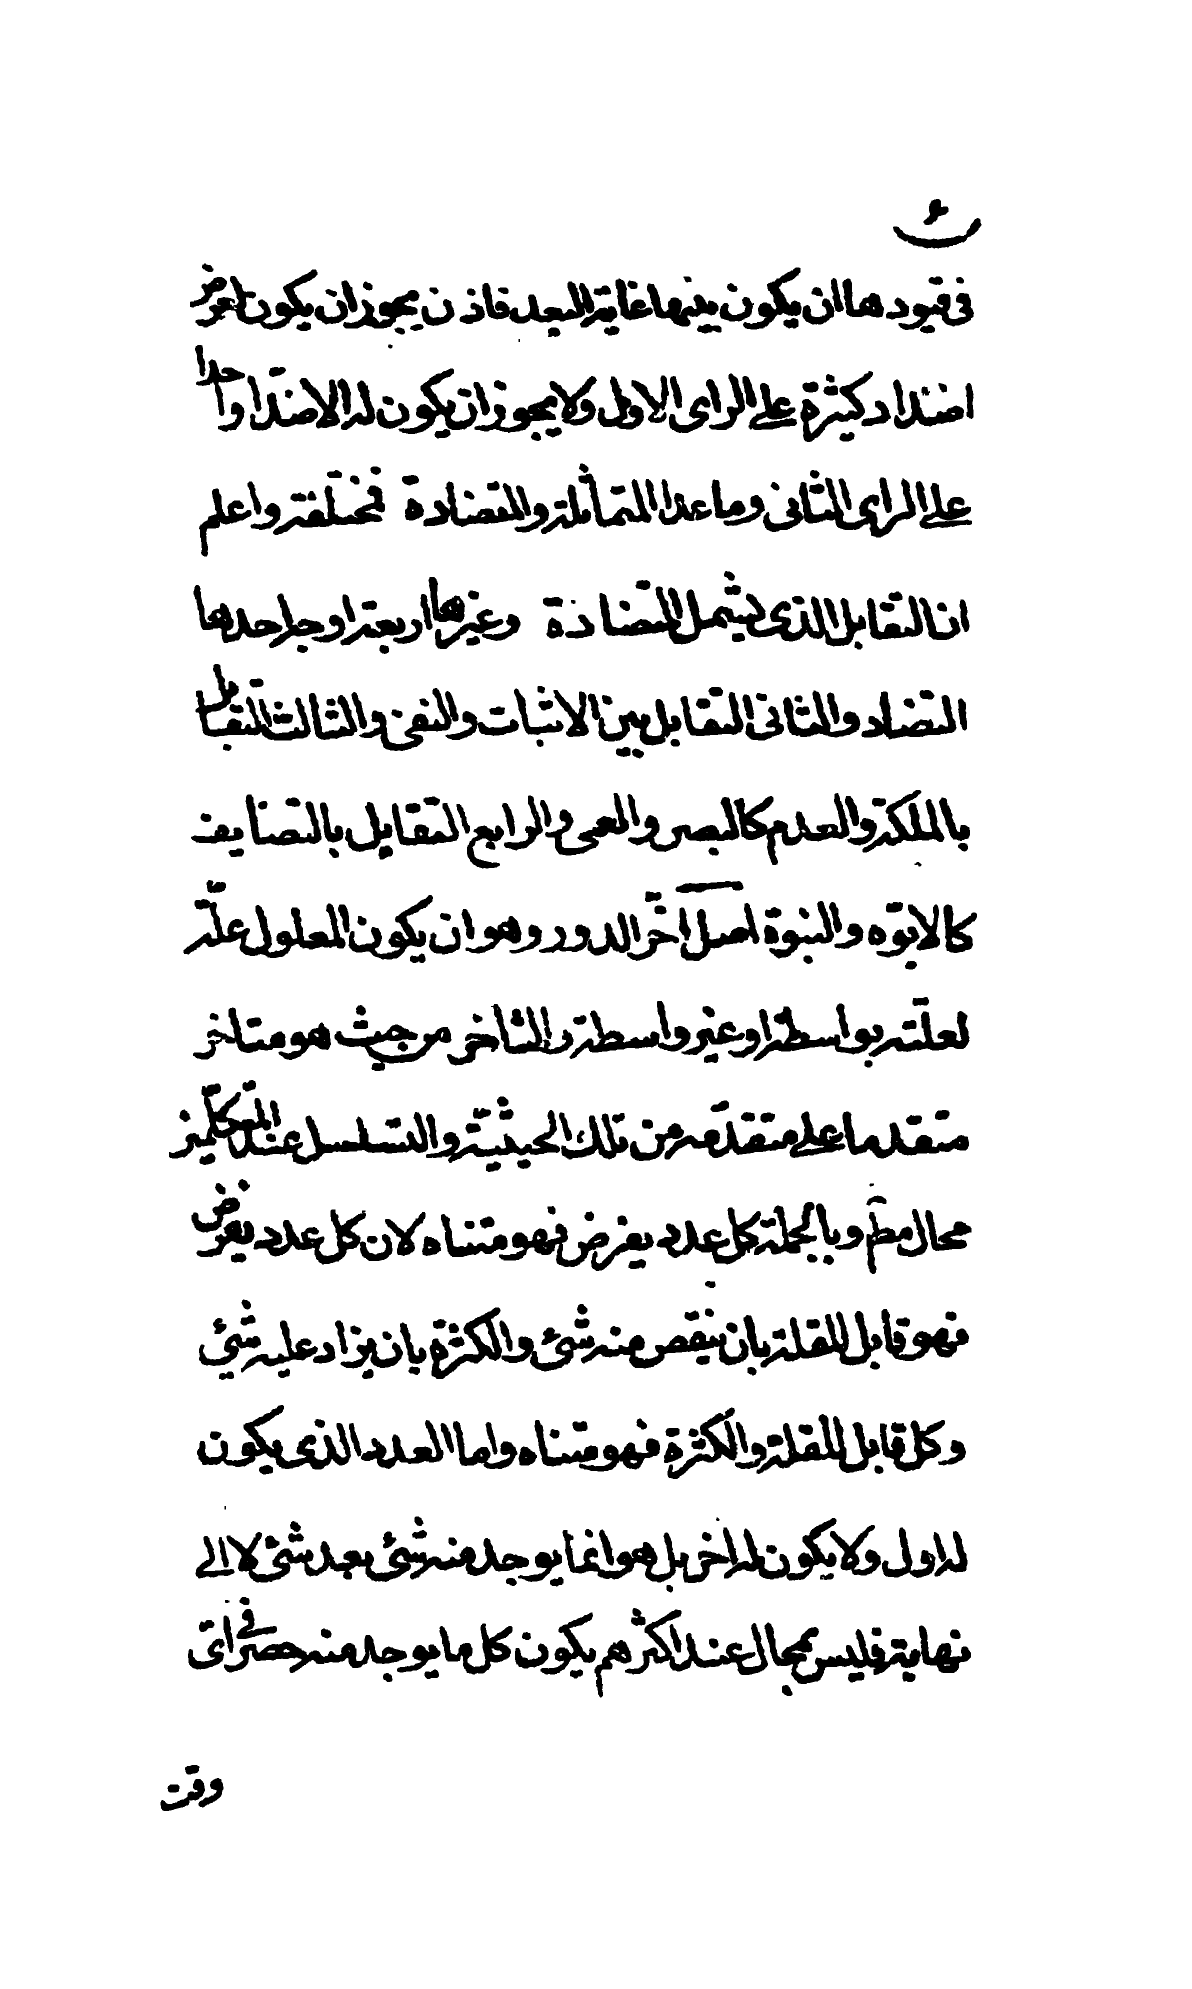 ۶
فى قيودها ان يكون بينهما غاية البعد فاذن يجوز ان يكون لعرض
اضداد كثيرة على الراى الاول ولا يجوز ان يكون له الا ضدّا واحدا
على الراى الثانى وما عدا المتماثلة والمتضادة فمختلفة واعلم
ان التقابل الذى يشمل المتضادة وغيرها اربعة اوجه احدها
التضاد والثانى التقابل بين الاثبات والنفى والثالث التقابل
بالملكة والعدم كالبصر والعمى والرابع التقابل بالتضايف
كالابوّه والبنوة اصل آخر الدور وهو ان يكون المعلول علّة
لعلته بواسطة او غير واسطة والمتأخر من حيث هو متاخر
متقدما على متقدّمه من تلك الحيثية والتسلسل عند المتكلمين
محال مطم وبالجملة كل عدد يفرض فهو متناه لان كل عدد يفرض
فهو قابل للقلة بان ينقص منه شئ والكثرة بان يزاد عليه شئ
وكل قابل للقلة والكثرة فهو متناه واما العدد الذى يكون
له اول ولا يكون له اخر بل هو انما يوجد منه شئ بعد شئ لا الى
نهاية فليس بمحال عند اكثرهم يكون كل ما يوجد منه حصر فى اىّ
وقت